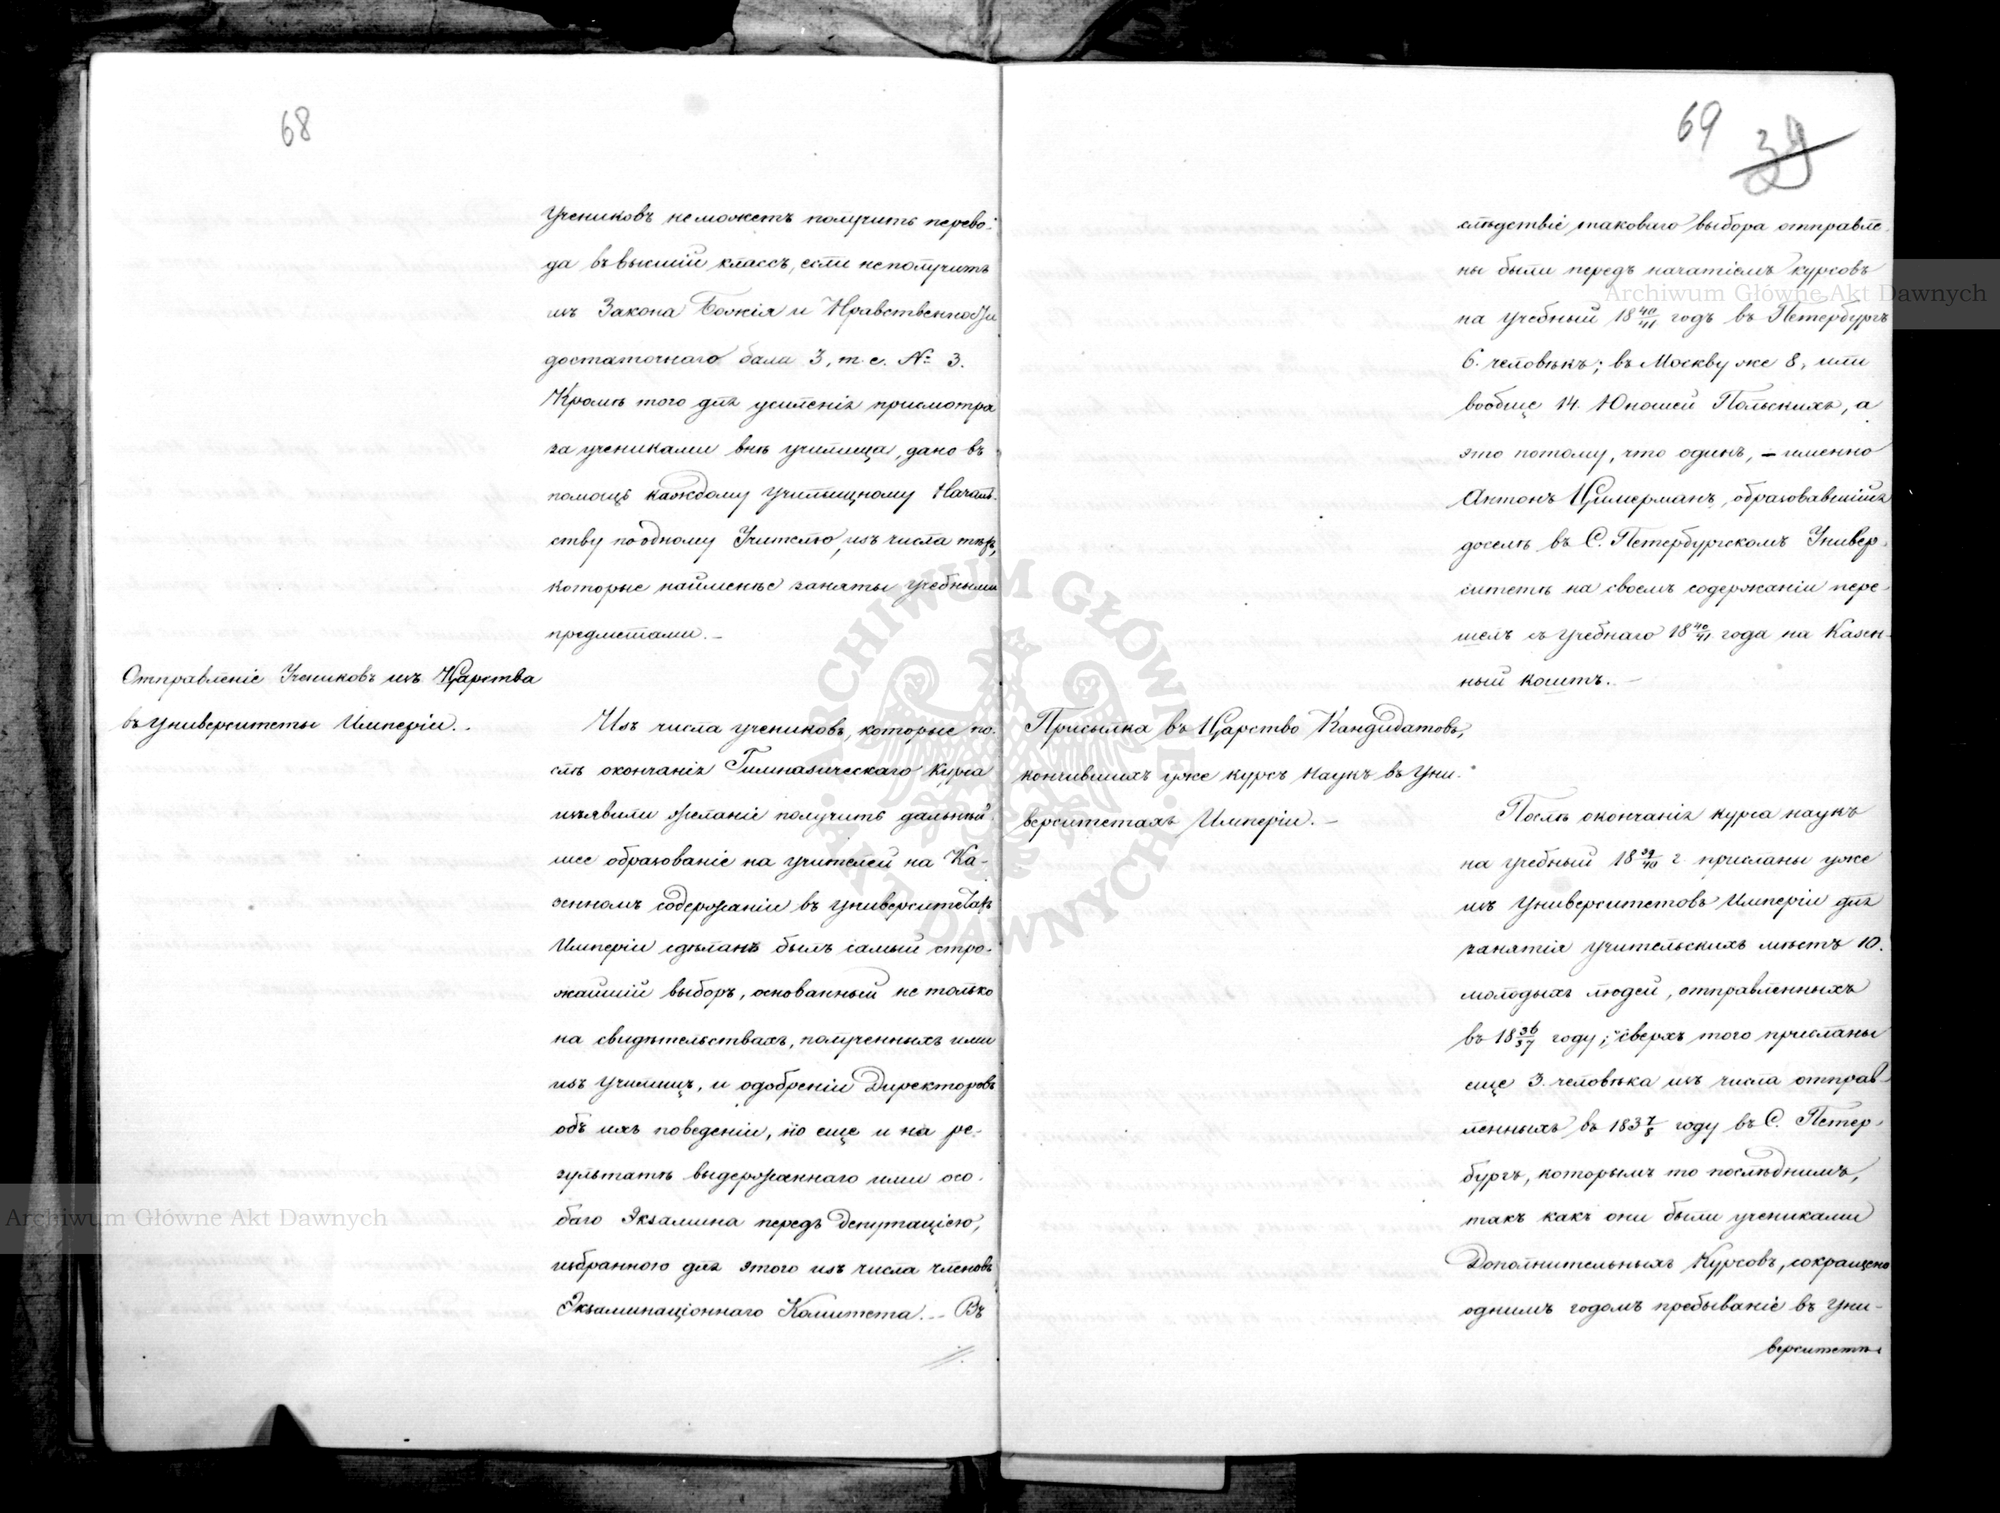 68
учениковъ не можетъ получить перево-
да въ высшій классъ, если не получитъ
изъ Закона Божія и Нравственности
достаточнаго бала 3, т. е. № 3.
Кромѣ того для усиленія присмотра
за учениками внѣ училища, дано въ
помощь каждому училищному Началь-
ству по одному Учителю, изъ числа тѣхъ,
которые наименѣе заняты учебными
предметами. —
Отправленіе Учениковъ изъ Царства
въ Университеты Имперіи. —
Изъ числа учениковъ, которые по-
слѣ окончанія Гимназическаго курса
изъявили желаніе получить дальнѣй-
шее образованіе на учителей на Ка-
зенномъ содержаніи въ Университетахъ
Имперіи сдѣланъ былъ самый стро-
жайшій выборъ, основанный не только
на свидѣтельствахъ, полученныхъ ими
изъ училищъ, и одобреніи Директоровъ
объ ихъ поведеніи, но еще и на ре-
зультатѣ выдержаннаго ими осо-
баго Экзамина передъ Депутаціею,
избранною для этого изъ числа членовъ
Экзаминаціоннаго Комитета. — Въ
69 39
слѣдствіе таковаго выбора отправле-
ны были передъ начатіемъ курсовъ
на учебный 18 40/41 годъ въ Петербургъ
6. человѣкъ; въ Москву же 8, или
вообще 14. Юношей Польскихъ, а
это потому, что одинъ, — именно
Антонъ Цимерманъ, образовавшійся
доселѣ въ С. Петербургскомъ Универ-
ситетѣ на своемъ содержаніи пере-
шелъ съ учебнаго 18 40/41 года на Казен-
ный коштъ. —
Присылка въ Царство Кандидатовъ,
кончившихъ уже курсъ наукъ въ Уни-
верситетахъ Имперіи. —
Послѣ окончанія курса наукъ
на учебный 18 39/40 г. присланы уже
изъ Университетовъ Имперіи для
занятія учительскихъ мѣстъ 10.
молодыхъ людей, отправленныхъ
въ 18 36/37 году; сверхъ того присланы
еще 3. человѣка изъ числа отправ-
ленныхъ въ 183 7/8 году въ С. Петер-
бургъ, которымъ то послѣднимъ,
такъ какъ они были учениками
Дополнительныхъ Курсовъ, сокращено
однимъ годомъ пребываніе въ Уни-
верситетѣ
Archiwum Główne Akt Dawnych
Archiwum Główne Akt Dawnych
ARCHIWUM GŁÓWNE AKT DAWNYCH